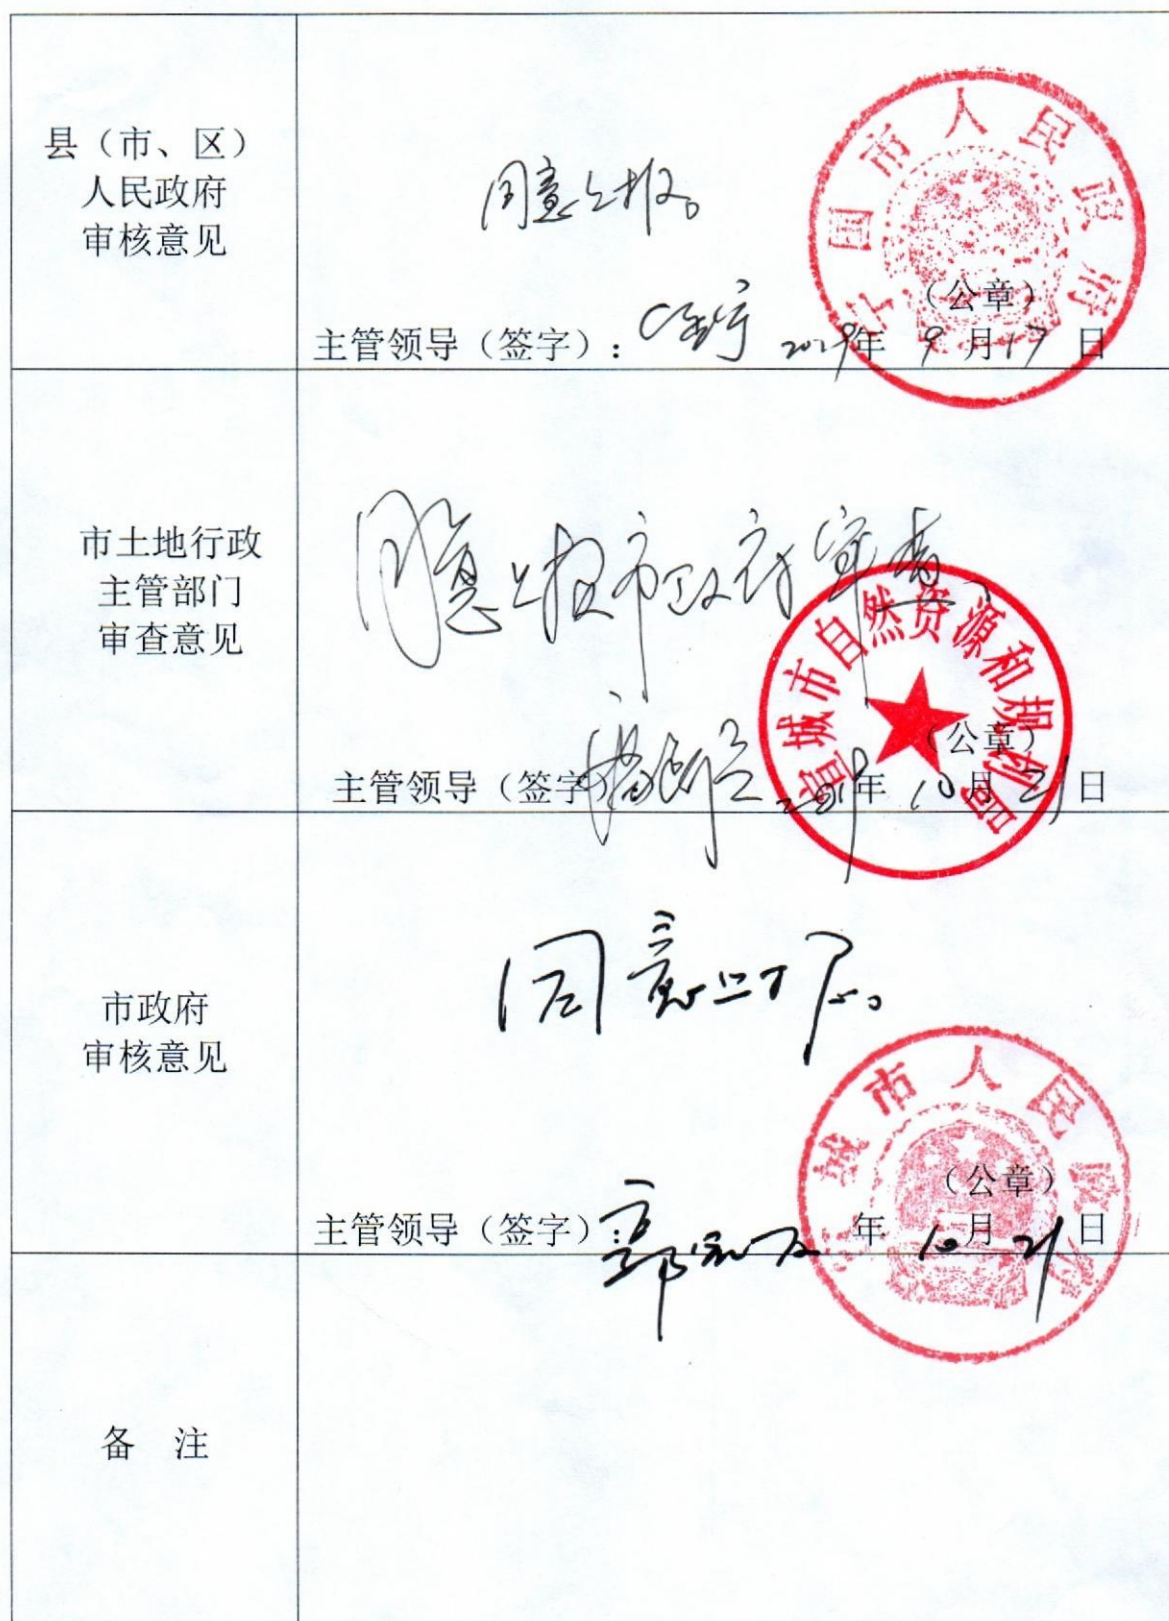 县（市、区）
人民政府
审核意见
同意上报。
宁国市人民政府
（公章）
主管领导（签字）：
2019年 9 月 17 日
市土地行政
主管部门
审查意见
同意上报市政府审查
宣城市自然资源和规划局
（公章）
主管领导（签字）
2019年 10 月 21 日
市政府
审核意见
同意上报。
城市人民政府
（公章）
主管领导（签字）：
年 10 月 21 日
备 注